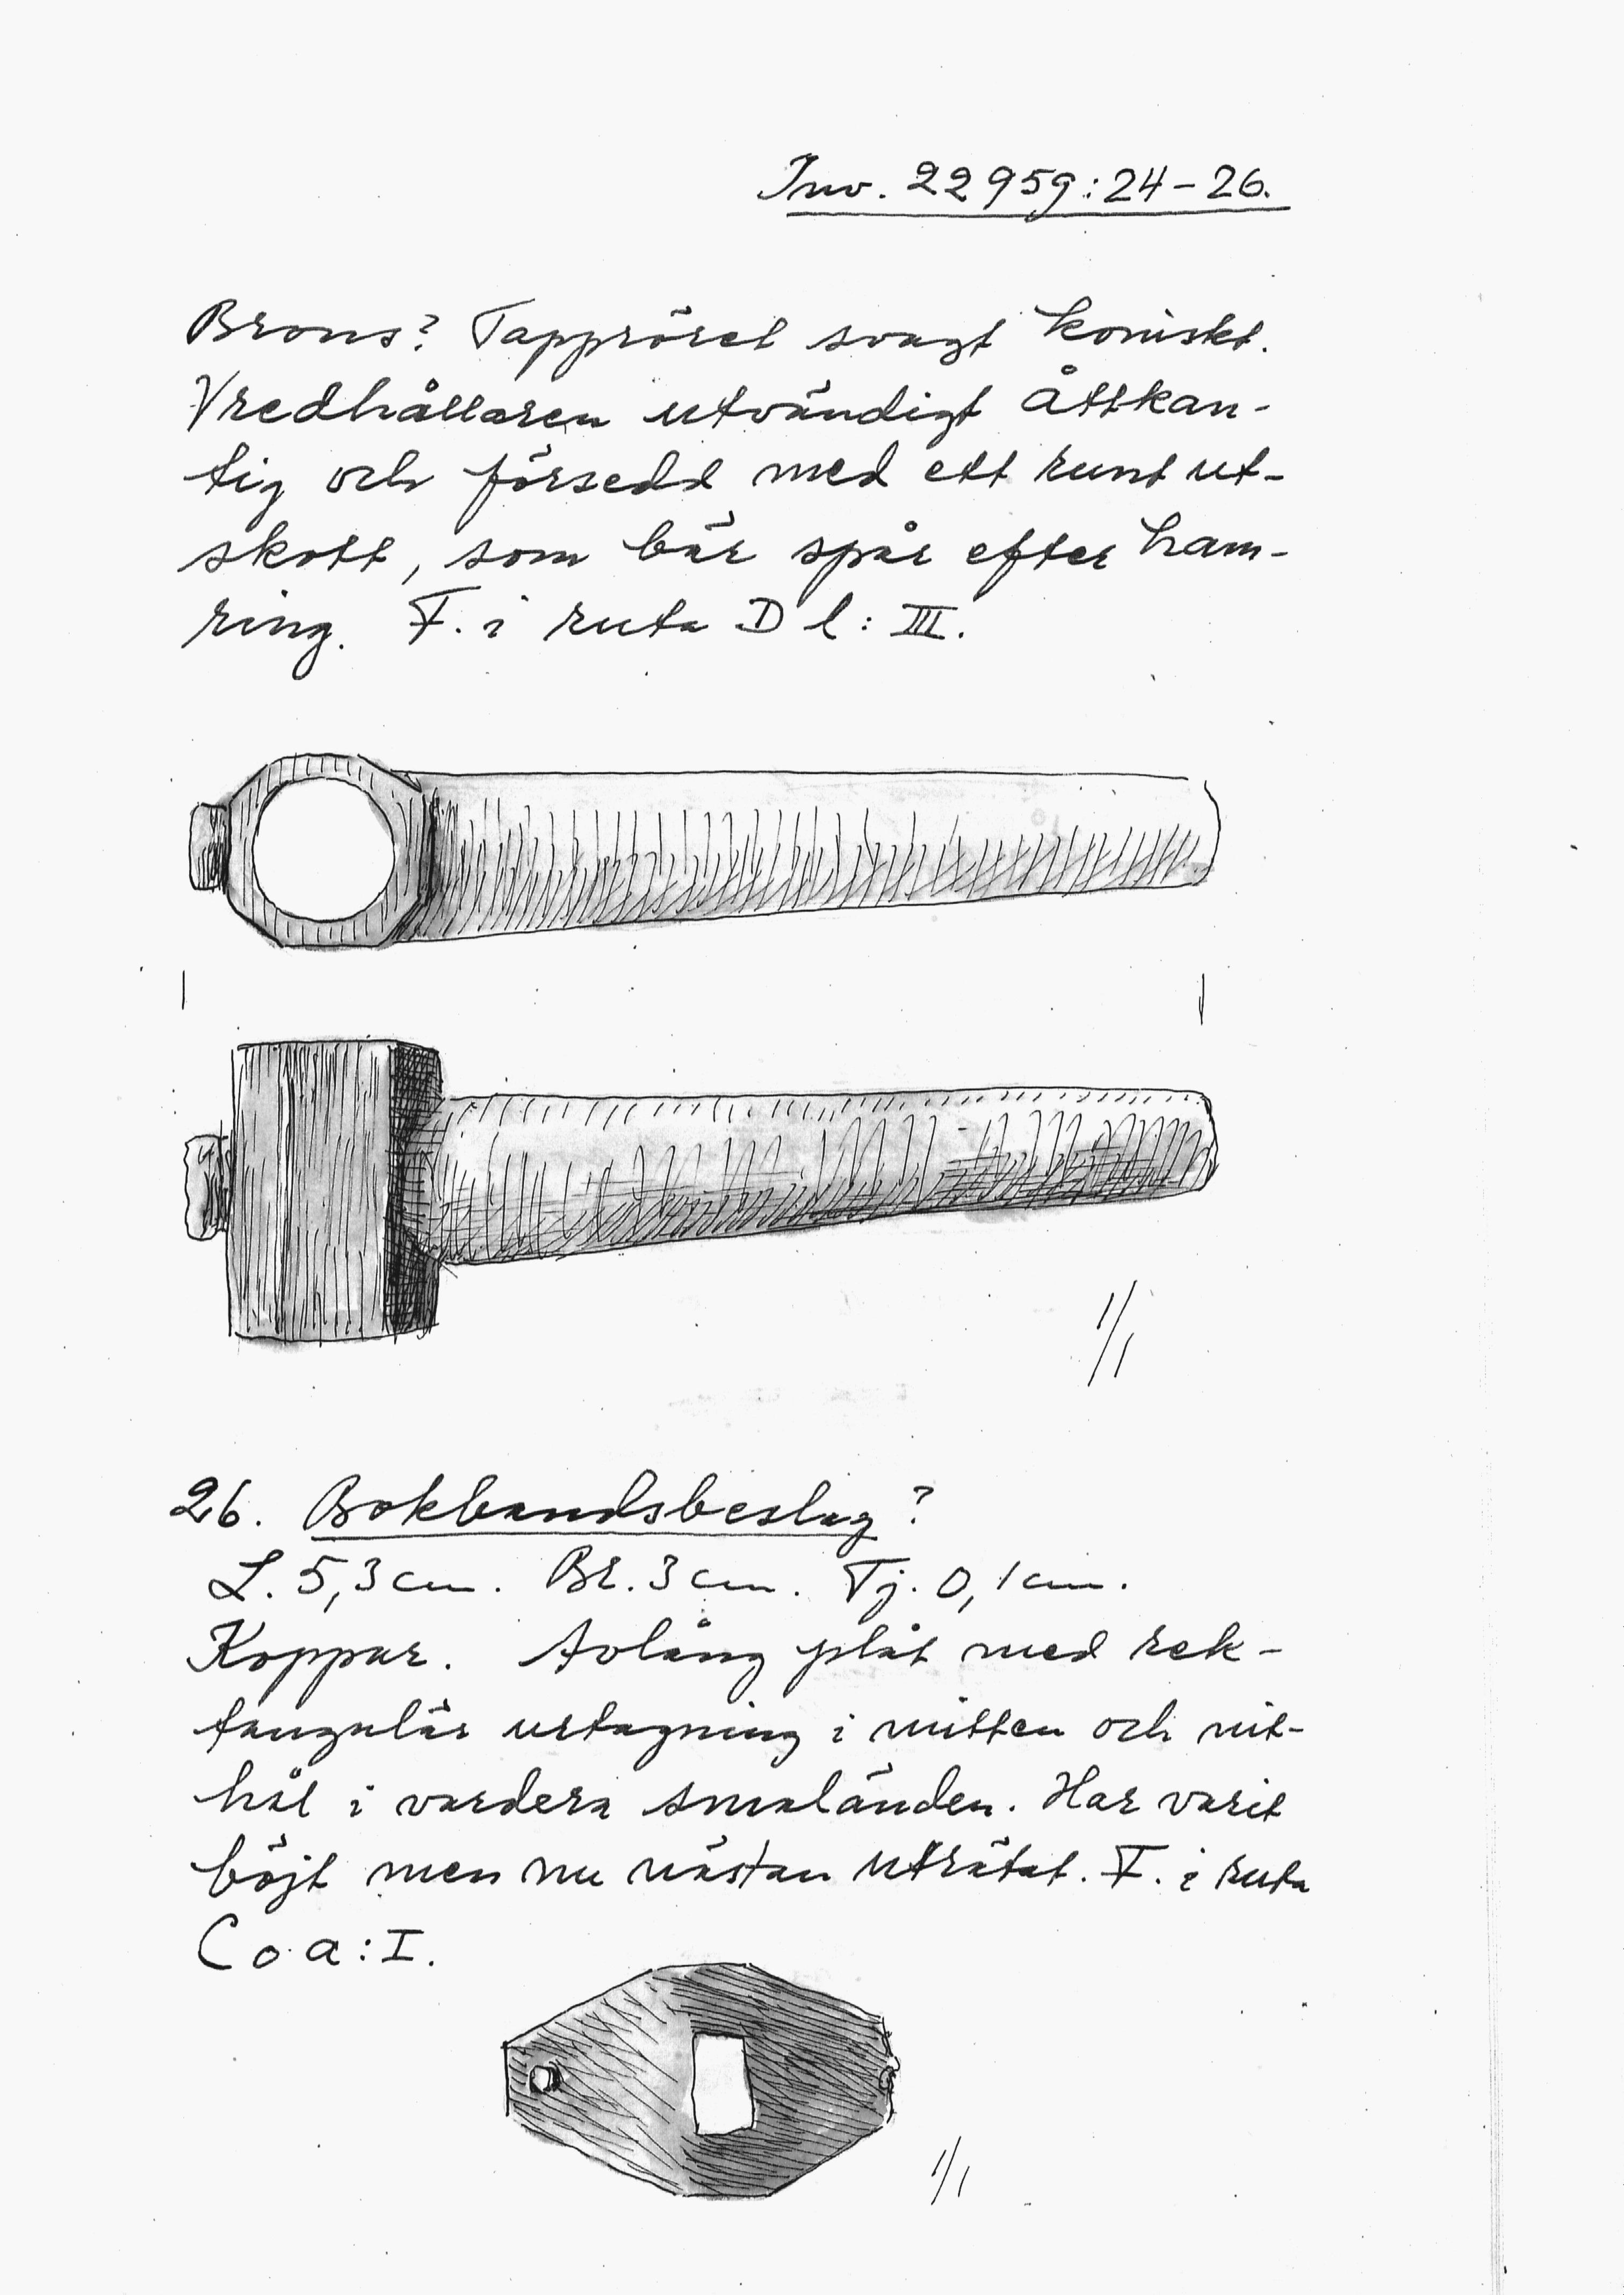 Inv. 22959:24-26.
Brons? Tappröret svagt koniskt.
Vredhållaren utvändigt åttkan-
tig och försedd med ett runt ut-
skott, som bär spår efter ham-
ring. F. i ruta D l: III.
1/1
26. Bokbandsbeslag?
L. 5,3 cm. Br. 3 cm. Tj. 0,1 cm.
Koppar. Avlång plåt med rek-
tangulär urtagning i mitten och nit-
hål i vardera smaländen. Har varit
böjt men nu nästan uträtat. F. i ruta
C o a: I.
1/1